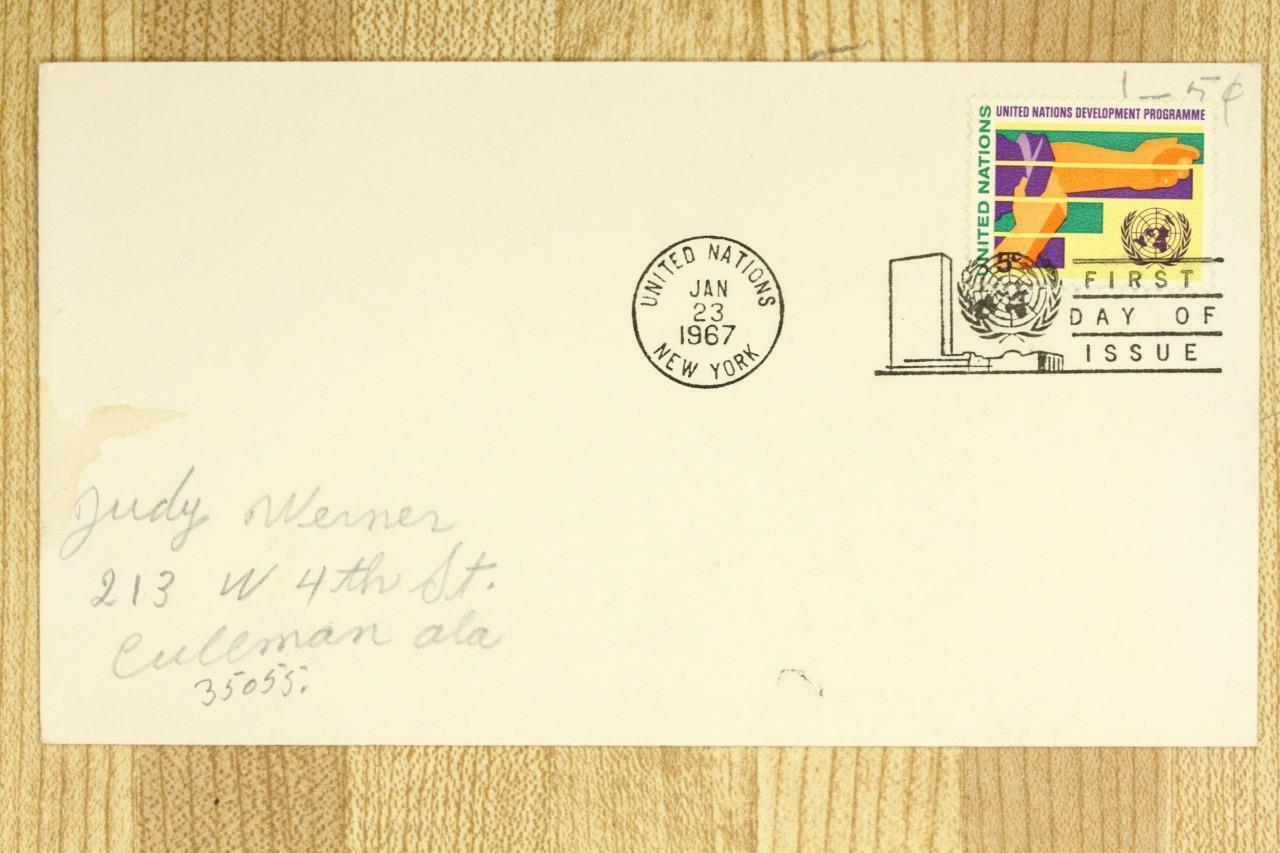 1 — 5¢
UNITED NATIONS DEVELOPMENT PROGRAMME
UNITED NATIONS
5c
UNITED NATIONS
JAN
23
1967
NEW YORK
FIRST
DAY OF
ISSUE
Judy Werner
213 W 4th St.
Cullman Ala
35055.